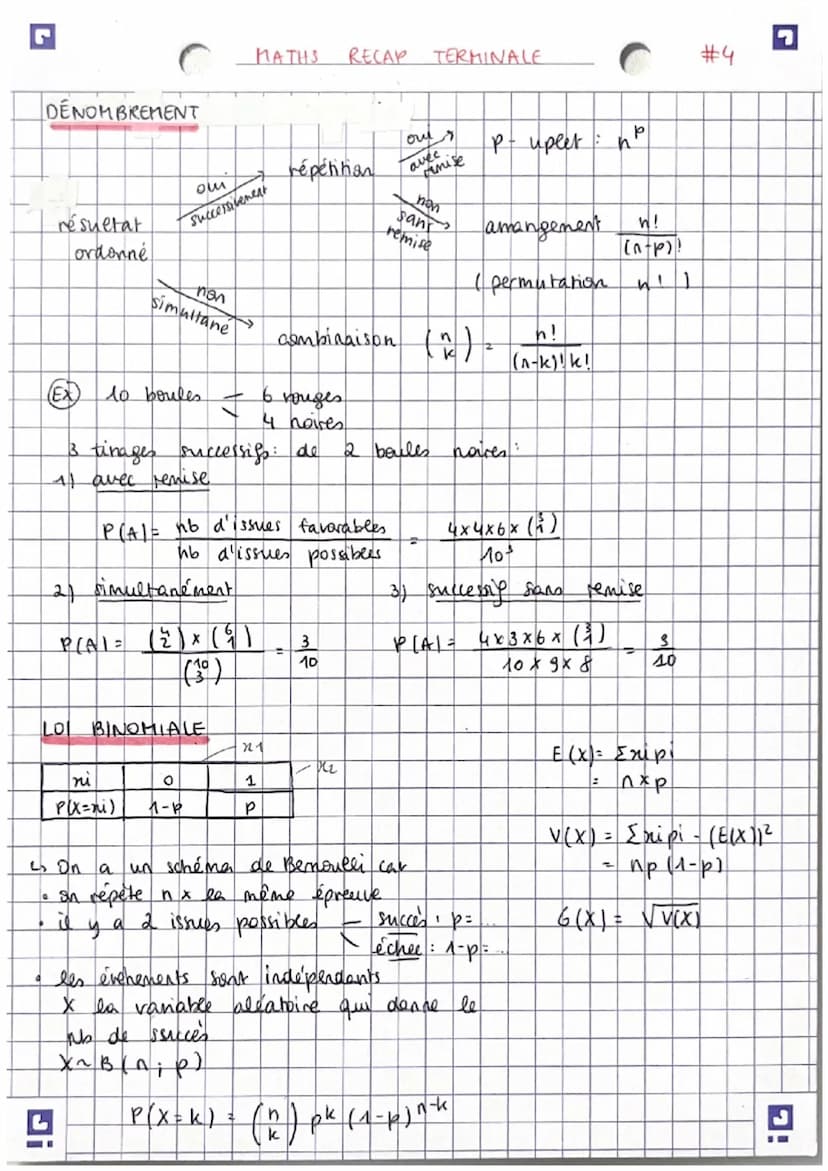 MATHS RECAP TERMINALE #4
DÉNOMBREMENT
résultat ordonné
oui successivement
répétition
oui avec remise
p-uplet : n^p
non sans remise
arrangement n!/(n-p)!
(permutation n!)
non simultané
combinaison (n k) = n!/((n-k)!k!)
Ex 10 boules — 6 rouges
4 noires
3 tirages successifs: de 2 boules noires:
1) avec remise
P(A) = nb d'issues favorables / nb d'issues possibles = 4x4x6x(3 1) / 10³
2) simultanément
P(A) = (4 2) x (6 1) / (10 3) = 3/10
3) successif sans remise
P(A) = 4x3x6x(3 1) / 10x9x8 = 3/10
LOI BINOMIALE
x1
x2
xi 0 1
P(X=xi) 1-p p
E(X) = Σxipi
= n×p
V(X) = Σxipi - (E(X))²
= np(1-p)
σ(X) = √V(X)
↳ On a un schéma de Bernoulli car
• on répète n x la même épreuve
• il y a 2 issues possibles — succès : p= ...
échec : 1-p= ...
• les évènements sont indépendants
X la variable aléatoire qui donne le
nb de succès
X~B(n; p)
P(X=k) = (n k) p^k (1-p)^n-k